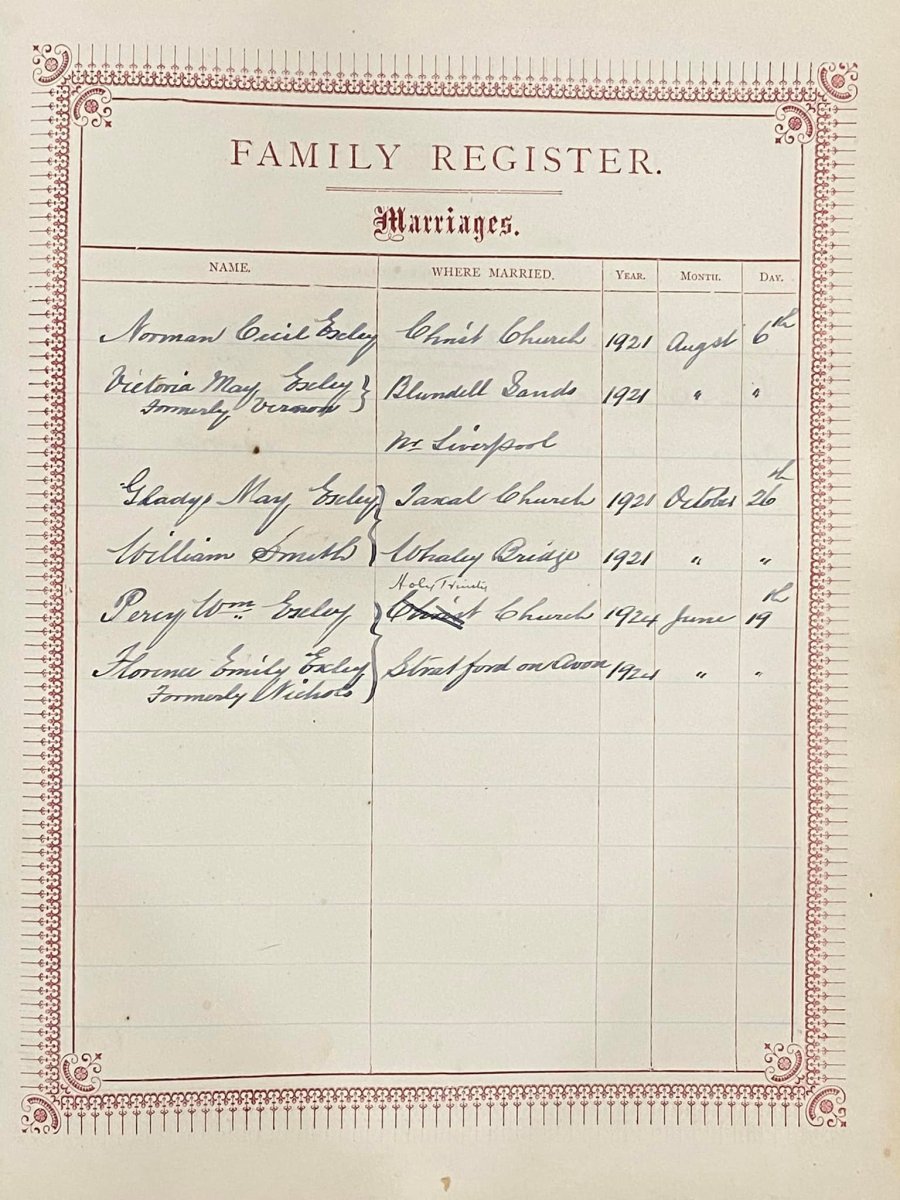 FAMILY REGISTER.
Marriages.
NAME. WHERE MARRIED. YEAR. MONTH. DAY.
Norman Cecil Exley Christ Church 1921 Augst 6th
Victoria May Exley } Blundell Sands 1921 " "
Formerly Vernon
Nr Liverpool
Gladys May Exley } Taxal Church 1921 October 26th
William Smith Whaley Bridge 1921 " "
Holy Trinity
Percy Wm Exley } Christ Church 1924 June 19th
Florence Emily Exley Stratford on Avon 1924 " "
Formerly Nichols